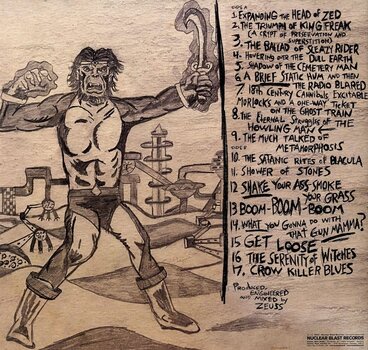 SIDE A
1. EXPANDING THE HEAD OF ZED
2. THE TRIUMPH OF KING FREAK
(A CRYPT OF PRESERVATION AND
SUPERSTITION)
3. THE BALLAD OF SLEAZY RIDER
4. HOVERING OVER THE DULL EARTH
5. SHADOW OF THE CEMETERY MAN
6. A BRIEF STATIC HUM AND THEN
THE RADIO BLARED
7. 18TH CENTURY CANNIBALS, EXCITABLE
MORLOCKS AND A ONE-WAY TICKET
ON THE GHOST TRAIN
8. THE ETERNAL STRUGGLES OF THE
HOWLING MAN
9. THE MUCH TALKED OF
METAMORPHOSIS
10. THE SATANIC RITES OF BLACULA
11. SHOWER OF STONES
12. SHAKE YOUR ASS-SMOKE
YOUR GRASS
13 BOOM-BOOM-BOOM
14. WHAT YOU GONNA DO WITH
THAT GUN MAMMA?
15 GET LOOSE
16 THE SERENITY OF WITCHES
17. CROW KILLER BLUES
PRODUCED,
ENGINEERED
AND MIXED
BY
ZEUSS
NUCLEAR BLAST RECORDS